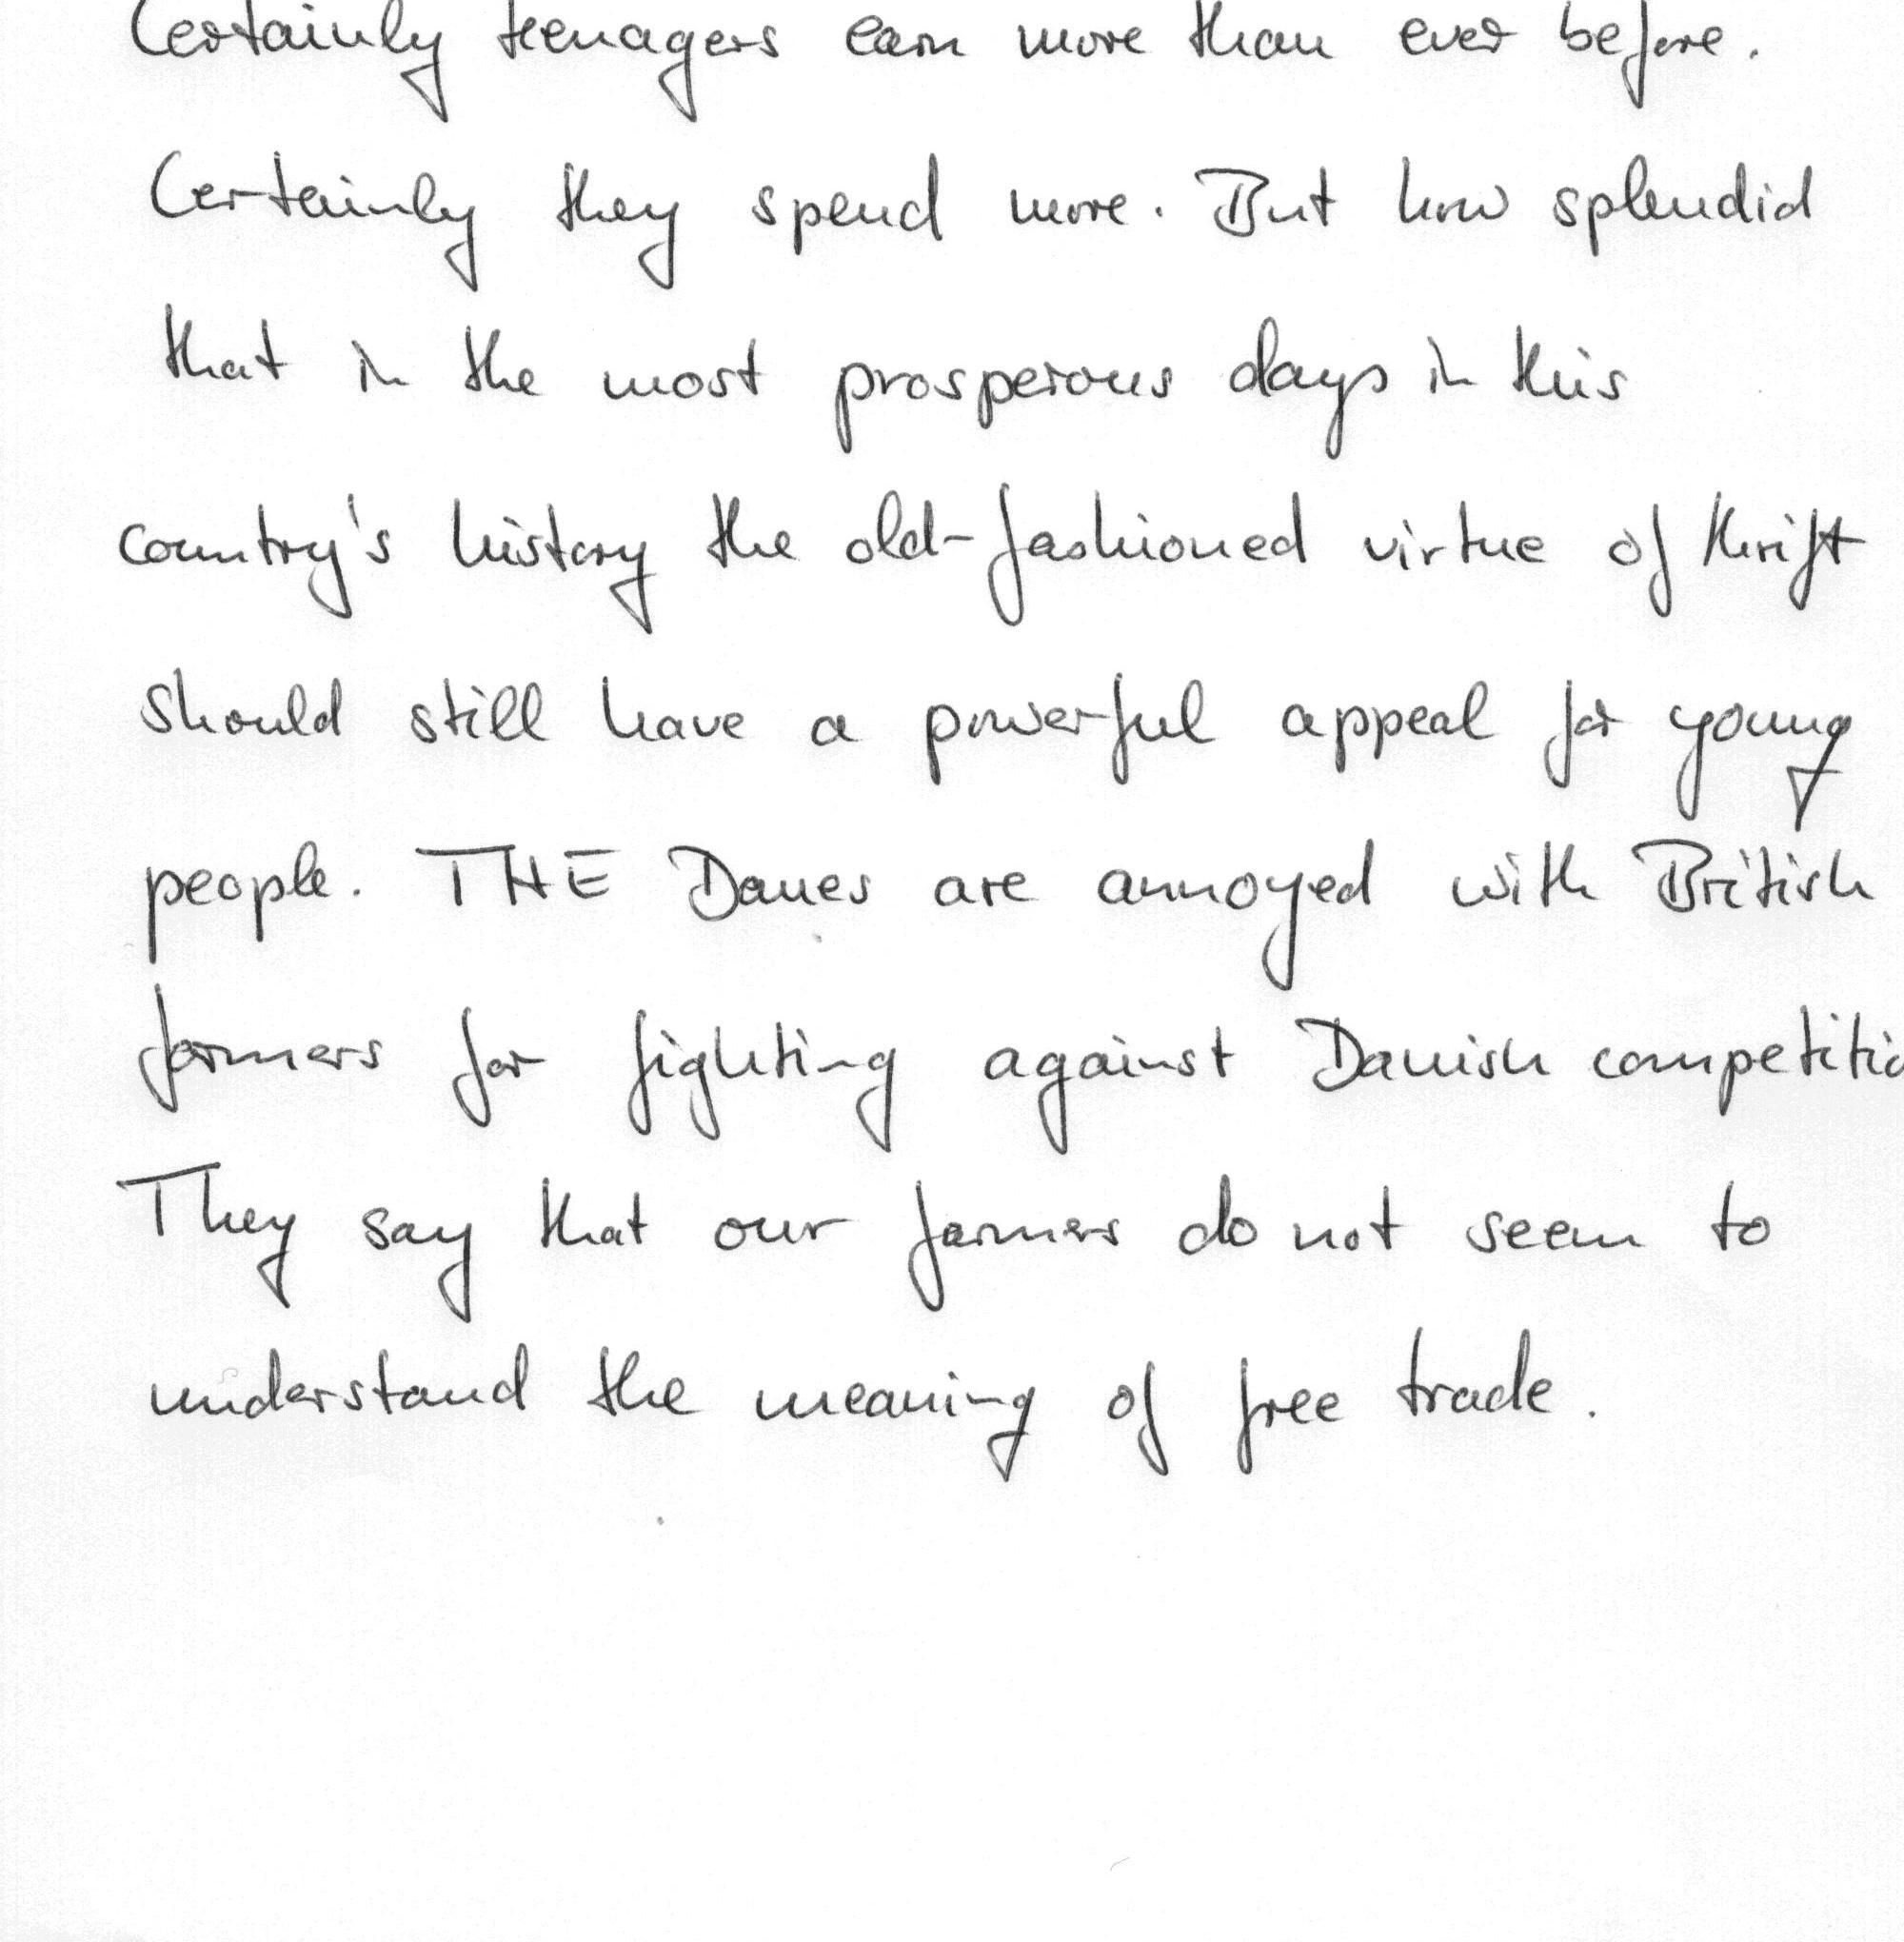 Certainly teenagers earn more than ever before.
Certainly they spend more. But how splendid
that in the most prosperous days in this
country's history the old-fashioned virtue of thrift
should still have a powerful appeal for young
people. THE Danes are annoyed with British
farmers for fighting against Danish competitio
They say that our farmers do not seem to
understand the meaning of free trade.